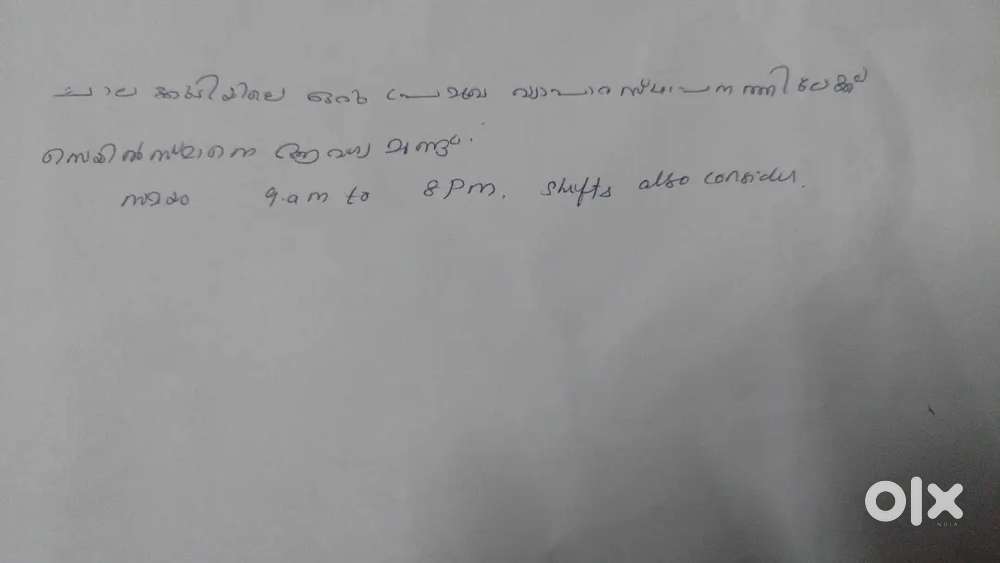 ചാലക്കുടിയിലെ ഒരു പ്രമുഖ വ്യാപാരസ്ഥാപനത്തിലേക്ക്
സെയിൽസ്മാനെ ആവശ്യമുണ്ട്.
സമയം 9.am to 8 pm. shifts also consider.
OLX
INDIA